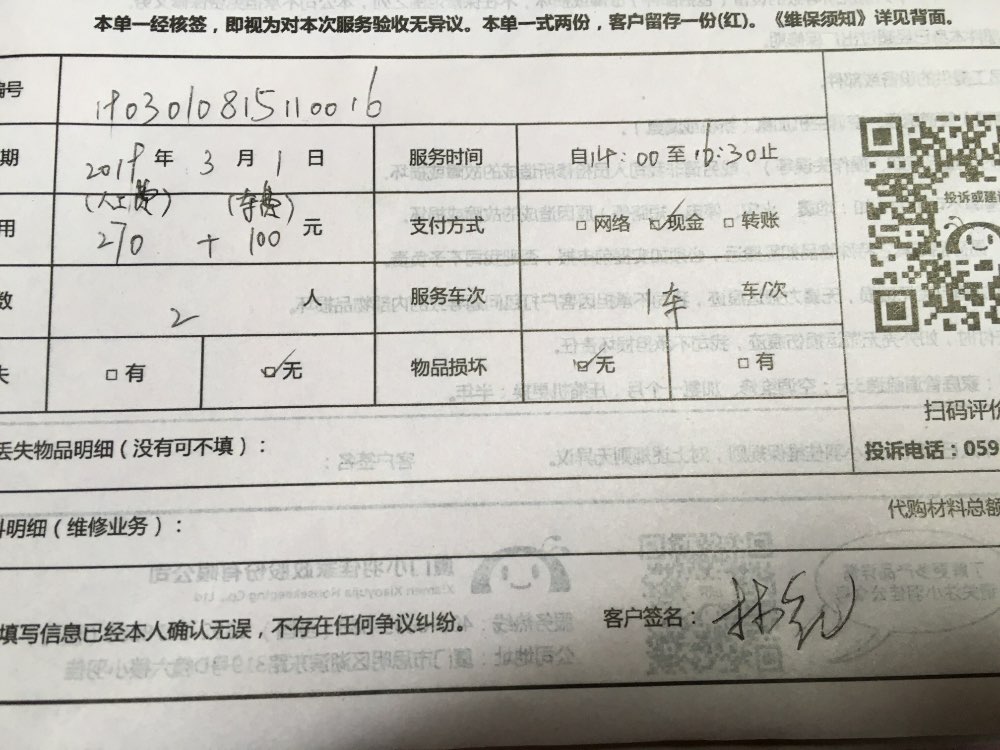 本单一经核签，即视为对本次服务验收无异议。本单一式两份，客户留存一份(红)。《维保须知》详见背面。
编号
1903010815110016
期 2019 年 3 月 1 日 服务时间 自14：00 至 16：30止
(人工费) (车费)
用 270 + 100 元 支付方式 □ 网络 ☑ 现金 □ 转账
投诉或建议
数 2 人 服务车次 1车 车/次
失 □ 有 ☑ 无 物品损坏 ☑ 无 □ 有
扫码评价
丢失物品明细（没有可不填）：
投诉电话：059
代购材料总额
料明细（维修业务）：
填写信息已经本人确认无误，不存在任何争议纠纷。
客户签名：